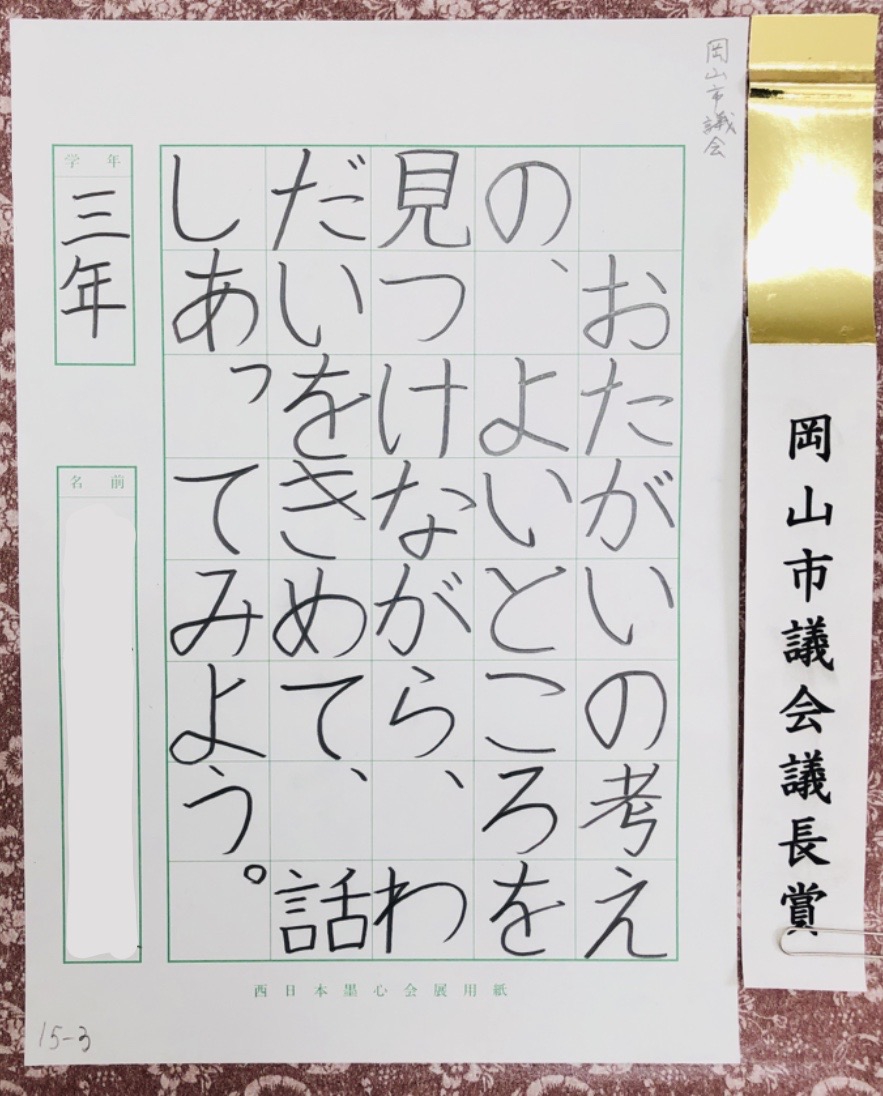 岡山市議会議長賞
岡山市議会
おたがいの考え
の、よいところを
見つけながら、わ
だいをきめて、話
しあってみよう。
学年
三年
名前
西日本墨心会展用紙
15-3